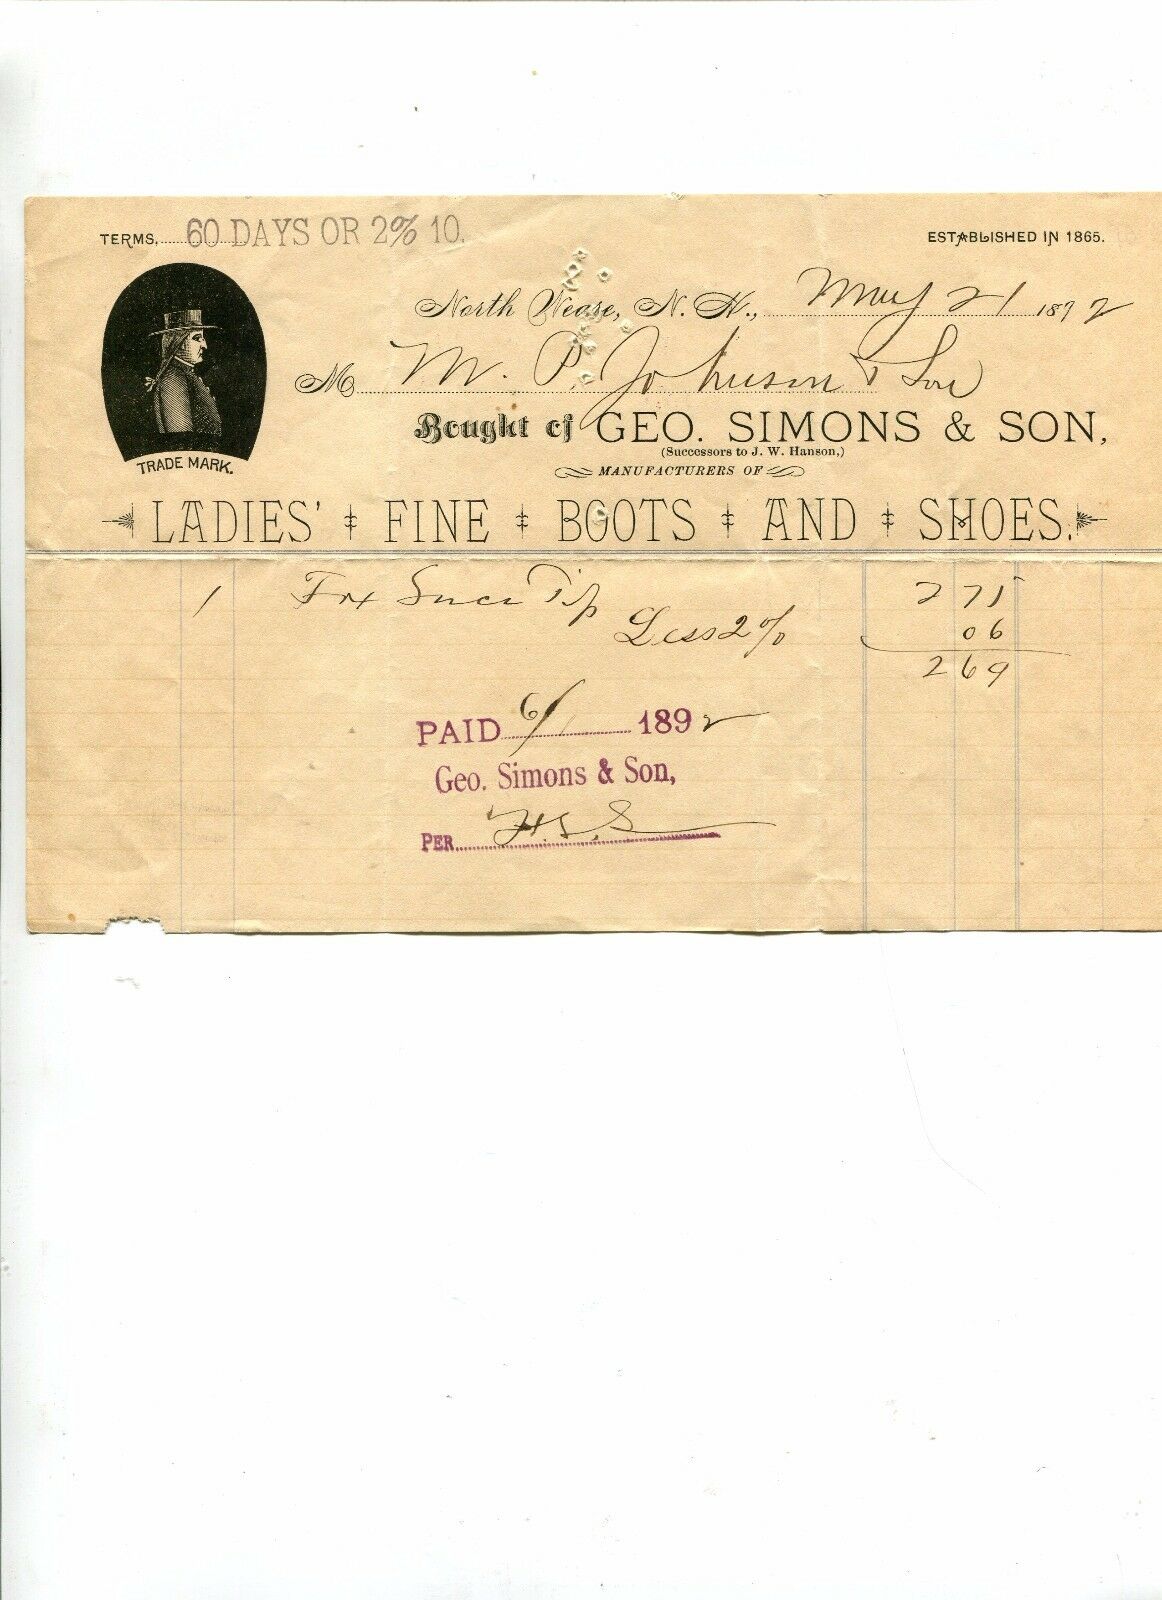 TERMS, 60 DAYS OR 2% 10.
ESTABLISHED IN 1865.
North Weare, N. H., May 21 1892
M M. P. Johnson & Son
Bought of GEO. SIMONS & SON,
(Successors to J. W. Hanson,)
MANUFACTURERS OF
TRADE MARK.
LADIES' FINE BOOTS AND SHOES.
1 Fox Tip 2 75
Less 2% 06
2 69
PAID 6/1 1892
Geo. Simons & Son,
PER H. S. S